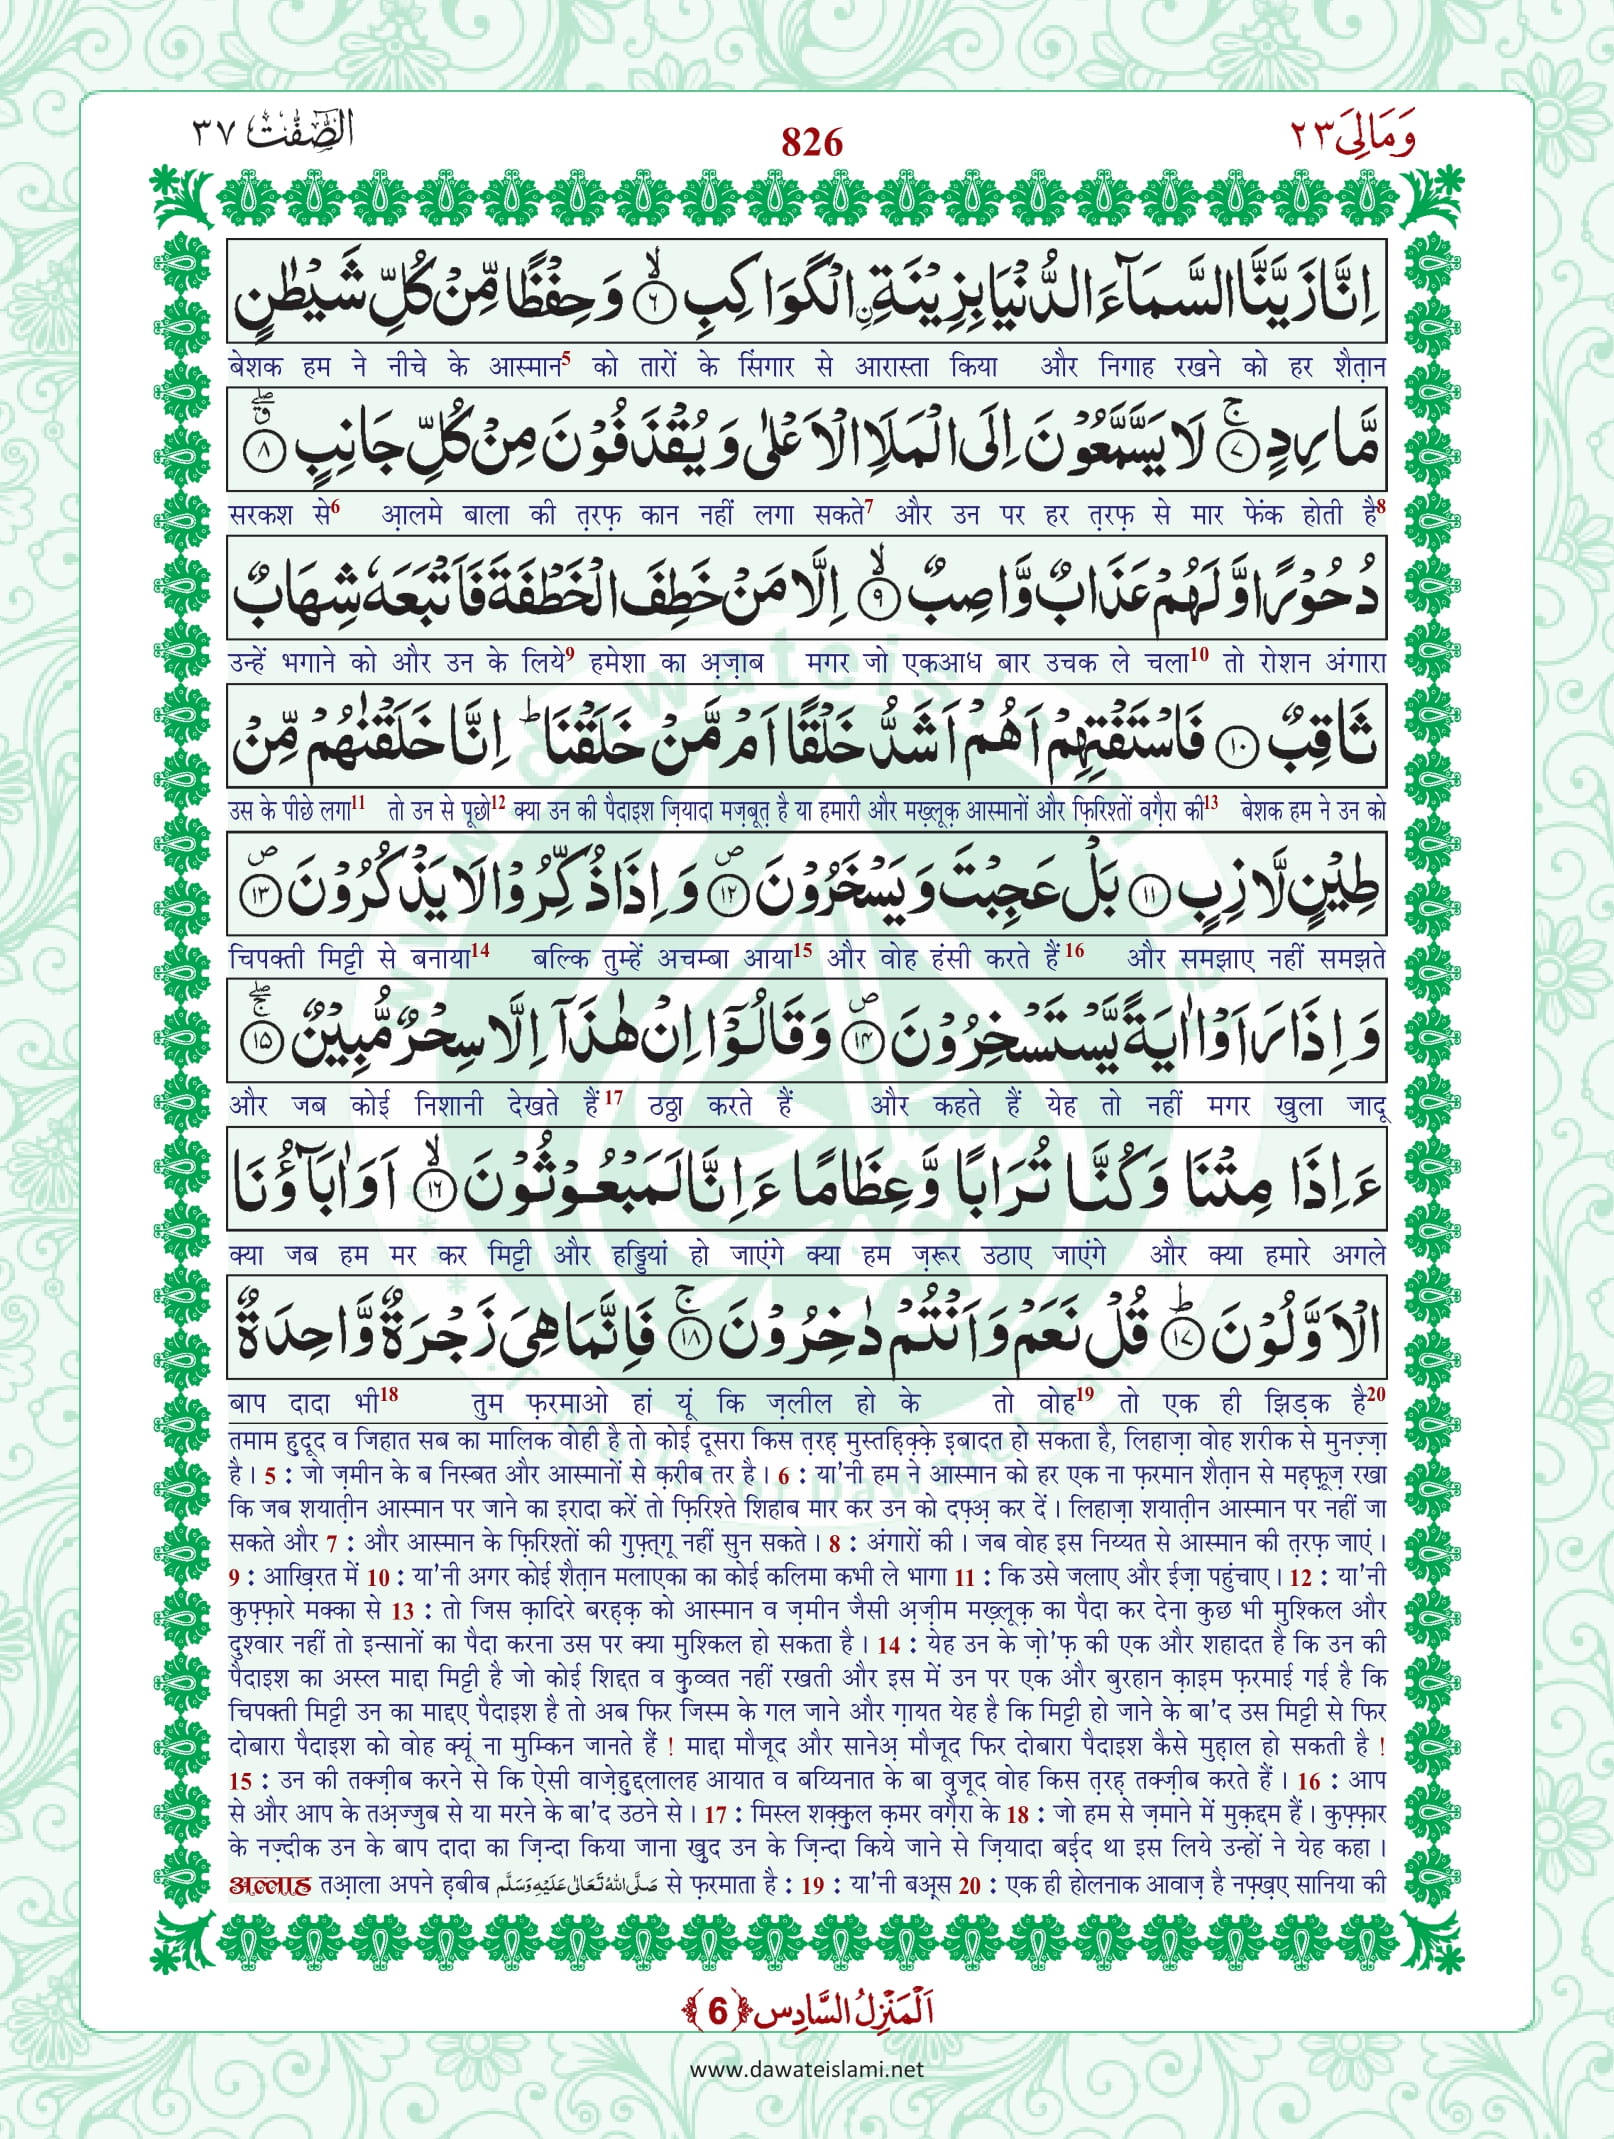 وَمَالِیَ ٢٣
826
الصّٰٓفّٰت ٣٧
اِنَّا زَیَّنَّا السَّمَآءَ الدُّنْیَا بِزِیْنَةِ ﹰالْكَوَاكِبِۙ﴿٦﴾ وَ حِفْظًا مِّنْ كُلِّ شَیْطٰنٍ
बेशक हम ने नीचे के आस्मान⁵ को तारों के सिंगार से आरास्ता किया और निगाह रखने को हर शैत़ान
مَّارِدٍۚ﴿٧﴾ لَا یَسَّمَّعُوْنَ اِلَى الْمَلَاِ الْاَعْلٰى وَ یُقْذَفُوْنَ مِنْ كُلِّ جَانِبٍۗۖ﴿٨﴾
सरकश से⁶ आ़लमे बाला की त़रफ़ कान नहीं लगा सकते⁷ और उन पर हर त़रफ़ से मार फेंक होती है⁸
دُحُوْرًا وَّ لَهُمْ عَذَابٌ وَّاصِبٌۙ﴿٩﴾ اِلَّا مَنْ خَطِفَ الْخَطْفَةَ فَاَتْبَعَهٗ شِهَابٌ
उन्हें भगाने को और उन के लिये⁹ हमेशा का अ़ज़ाब मगर जो एकआध बार उचक ले चला¹⁰ तो रोशन अंगारा
ثَاقِبٌ﴿١٠﴾ فَاسْتَفْتِهِمْ اَهُمْ اَشَدُّ خَلْقًا اَمْ مَّنْ خَلَقْنَاؕ اِنَّا خَلَقْنٰهُمْ مِّنْ
उस के पीछे लगा¹¹ तो उन से पूछो¹² क्या उन की पैदाइश ज़ियादा मज़बूत़ है या हमारी और मख़्लूक़ आस्मानों और फ़िरिश्तों वग़ैरा की¹³ बेशक हम ने उन को
طِیْنٍ لَّازِبٍ﴿١١﴾ بَلْ عَجِبْتَ وَ یَسْخَرُوْنَ۪﴿١٢﴾ وَ اِذَا ذُكِّرُوْا لَا یَذْكُرُوْنَ۪﴿١٣﴾
चिपक्ती मिट्टी से बनाया¹⁴ बल्कि तुम्हें अचम्बा आया¹⁵ और वोह हंसी करते हैं¹⁶ और समझाए नहीं समझते
وَ اِذَا رَاَوْا اٰیَةً یَّسْتَسْخِرُوْنَ۪﴿١٤﴾ وَ قَالُوْۤا اِنْ هٰذَاۤ اِلَّا سِحْرٌ مُّبِیْنٌۚۖ﴿١٥﴾
और जब कोई निशानी देखते हैं¹⁷ ठठ्ठा करते हैं और कहते हैं येह तो नहीं मगर खुला जादू
ءَاِذَا مِتْنَا وَ كُنَّا تُرَابًا وَّ عِظَامًا ءَاِنَّا لَمَبْعُوْثُوْنَۙ﴿١٦﴾ اَوَ اٰبَآؤُنَا
क्या जब हम मर कर मिट्टी और हड्डियां हो जाएंगे क्या हम ज़रूर उठाए जाएंगे और क्या हमारे अगले
الْاَوَّلُوْنَؕ﴿١٧﴾ قُلْ نَعَمْ وَ اَنْتُمْ دٰخِرُوْنَۚ﴿١٨﴾ فَاِنَّمَا هِیَ زَجْرَةٌ وَّاحِدَةٌ
बाप दादा भी¹⁸ तुम फ़रमाओ हां यूं कि ज़लील हो के तो वोह¹⁹ तो एक ही झिड़क है²⁰
तमाम ह़ुदूद व जिहात सब का मालिक वोही है तो कोई दूसरा किस त़रह़ मुस्तह़िक़्क़े इ़बादत हो सकता है, लिहाज़ा वोह शरीक से मुनज़्ज़ा
है। 5 : जो ज़मीन के ब निस्बत और आस्मानों से क़रीब तर है। 6 : या'नी हम ने आस्मान को हर एक ना फ़रमान शैत़ान से मह़फ़ूज़ रखा
कि जब शयात़ीन आस्मान पर जाने का इरादा करें तो फ़िरिश्ते शिहाब मार कर उन को दफ़्अ़ कर दें। लिहाज़ा शयात़ीन आस्मान पर नहीं जा
सकते और 7 : और आस्मान के फ़िरिश्तों की गुफ़्त्गू नहीं सुन सकते। 8 : अंगारों की। जब वोह इस निय्यत से आस्मान की त़रफ़ जाएं।
9 : आख़िरत में 10 : या'नी अगर कोई शैत़ान मलाएका का कोई कलिमा कभी ले भागा 11 : कि उसे जलाए और ईज़ा पहुंचाए। 12 : या'नी
कुफ़्फ़ारे मक्का से 13 : तो जिस क़ादिरे बरह़क़ को आस्मान व ज़मीन जैसी अ़ज़ीम मख़्लूक़ का पैदा कर देना कुछ भी मुश्किल और
दुश्वार नहीं तो इन्सानों का पैदा करना उस पर क्या मुश्किल हो सकता है। 14 : येह उन के ज़ो'फ़ की एक और शहादत है कि उन की
पैदाइश का अस्ल माद्दा मिट्टी है जो कोई शिद्दत व क़ुव्वत नहीं रखती और इस में उन पर एक और बुरहान क़ाइम फ़रमाई गई है कि
चिपक्ती मिट्टी उन का माद्दए पैदाइश है तो अब फिर जिस्म के गल जाने और ग़ायत येह है कि मिट्टी हो जाने के बा'द उस मिट्टी से फिर
दोबारा पैदाइश को वोह क्यूं ना मुम्किन जानते हैं! माद्दा मौजूद और सानेअ़ मौजूद फिर दोबारा पैदाइश कैसे मुह़ाल हो सकती है!
15 : उन की तक्ज़ीब करने से कि ऐसी वाज़ेह़ुद्दलालह आयात व बय्यिनात के बा वुजूद वोह किस त़रह़ तक्ज़ीब करते हैं। 16 : आप
से और आप के तअ़ज्जुब से या मरने के बा'द उठने से। 17 : मिस्ल शक़्क़ुल क़मर वग़ैरा के 18 : जो हम से ज़माने में मुक़द्दम हैं। कुफ़्फ़ार
के नज़्दीक उन के बाप दादा का ज़िन्दा किया जाना ख़ुद उन के ज़िन्दा किये जाने से ज़ियादा बई़द था इस लिये उन्हों ने येह कहा।
अल्लाह तआ़ला अपने ह़बीब صَلَّى اللهُ تَعَالٰى عَلَیْهِ وَسَلَّم से फ़रमाता है : 19 : या'नी बअ़्स 20 : एक ही होलनाक आवाज़ है नफ़्ख़ए सानिया की
اَلْمَنْزِلُ السَّادِس ﴿6﴾
www.dawateislami.net